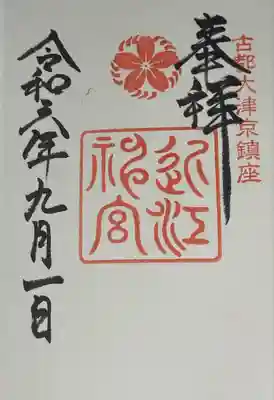 古都大津京鎮座
奉拝
近江神宮
令和六年九月一日